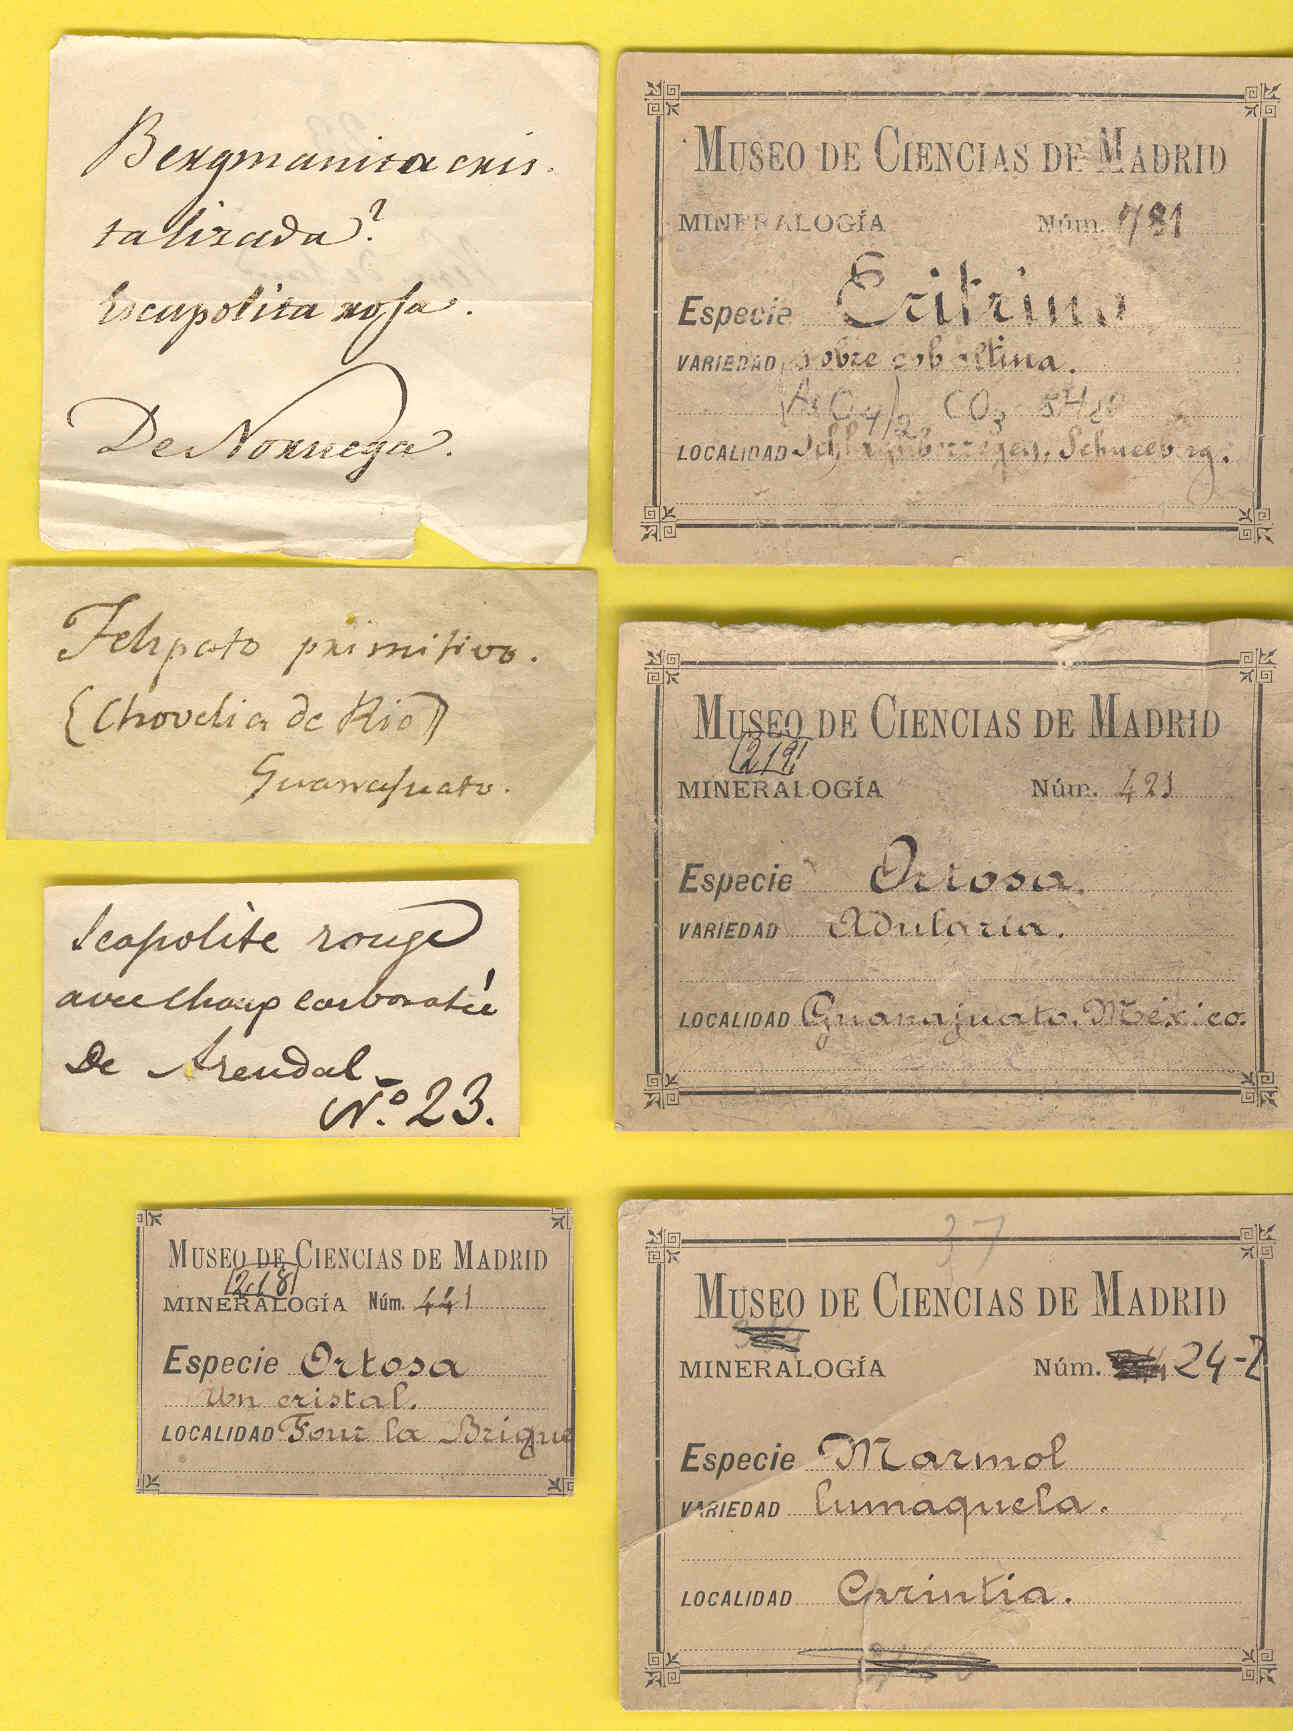 Bergmanita cris-
talizada?
Escapolita rosa.
De Noruega.
Felspato primitivo.
(Chovelia de Rio)
Guanajuato.
Scapolite rouge
avec Chaux carbonatée
De Arendal
Nº. 23.
MUSEO DE CIENCIAS DE MADRID
218
MINERALOGÍA Núm. 441
Especie Ortosa
Un cristal.
LOCALIDAD Four la Brigue
MUSEO DE CIENCIAS DE MADRID
MINERALOGÍA Núm. 781
Especie Eritrina
VARIEDAD sobre cobaltina.
(AsO4)2 CO3 8H2O
LOCALIDAD Schneeberg.
MUSEO DE CIENCIAS DE MADRID
219
MINERALOGÍA Núm. 421
Especie Ortosa.
VARIEDAD Adularia.
LOCALIDAD Guanajuato. México.
37
MUSEO DE CIENCIAS DE MADRID
MINERALOGÍA Núm. 24-2
Especie Marmol
VARIEDAD lumaquela.
LOCALIDAD Carintia.